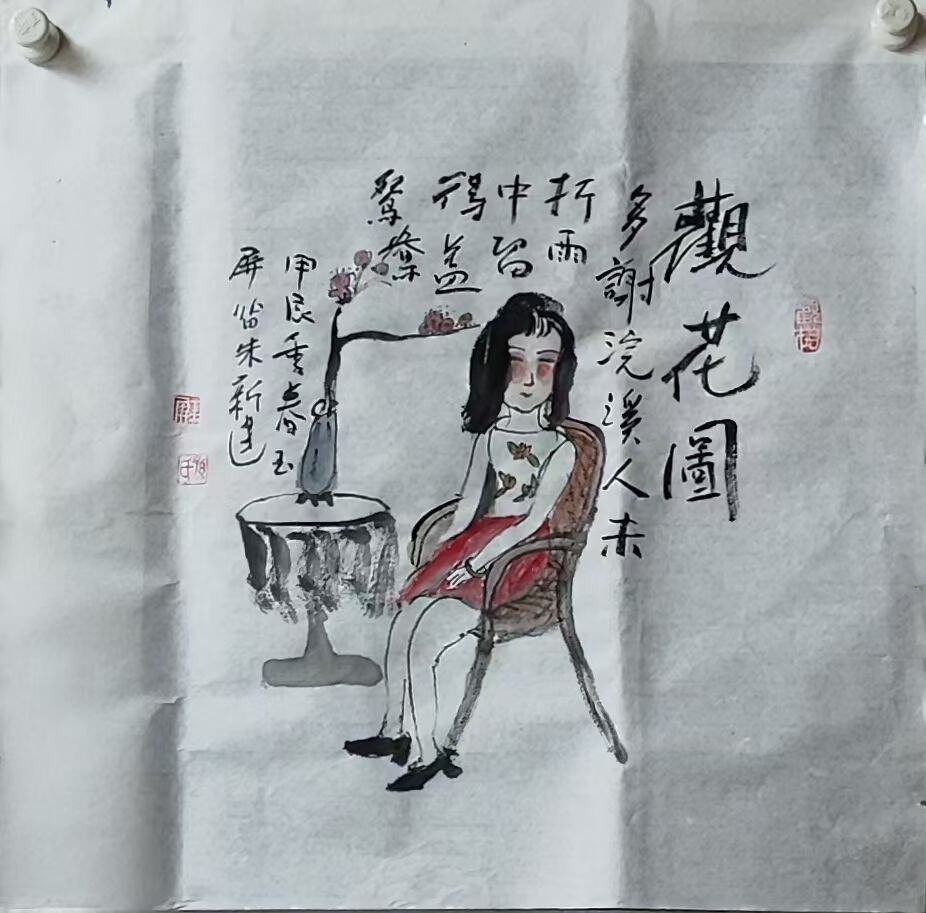 觀花圖
多謝浣溪人未
折雨
中留
得盖
鴛鴦
甲辰季春玉
屏笛朱新建